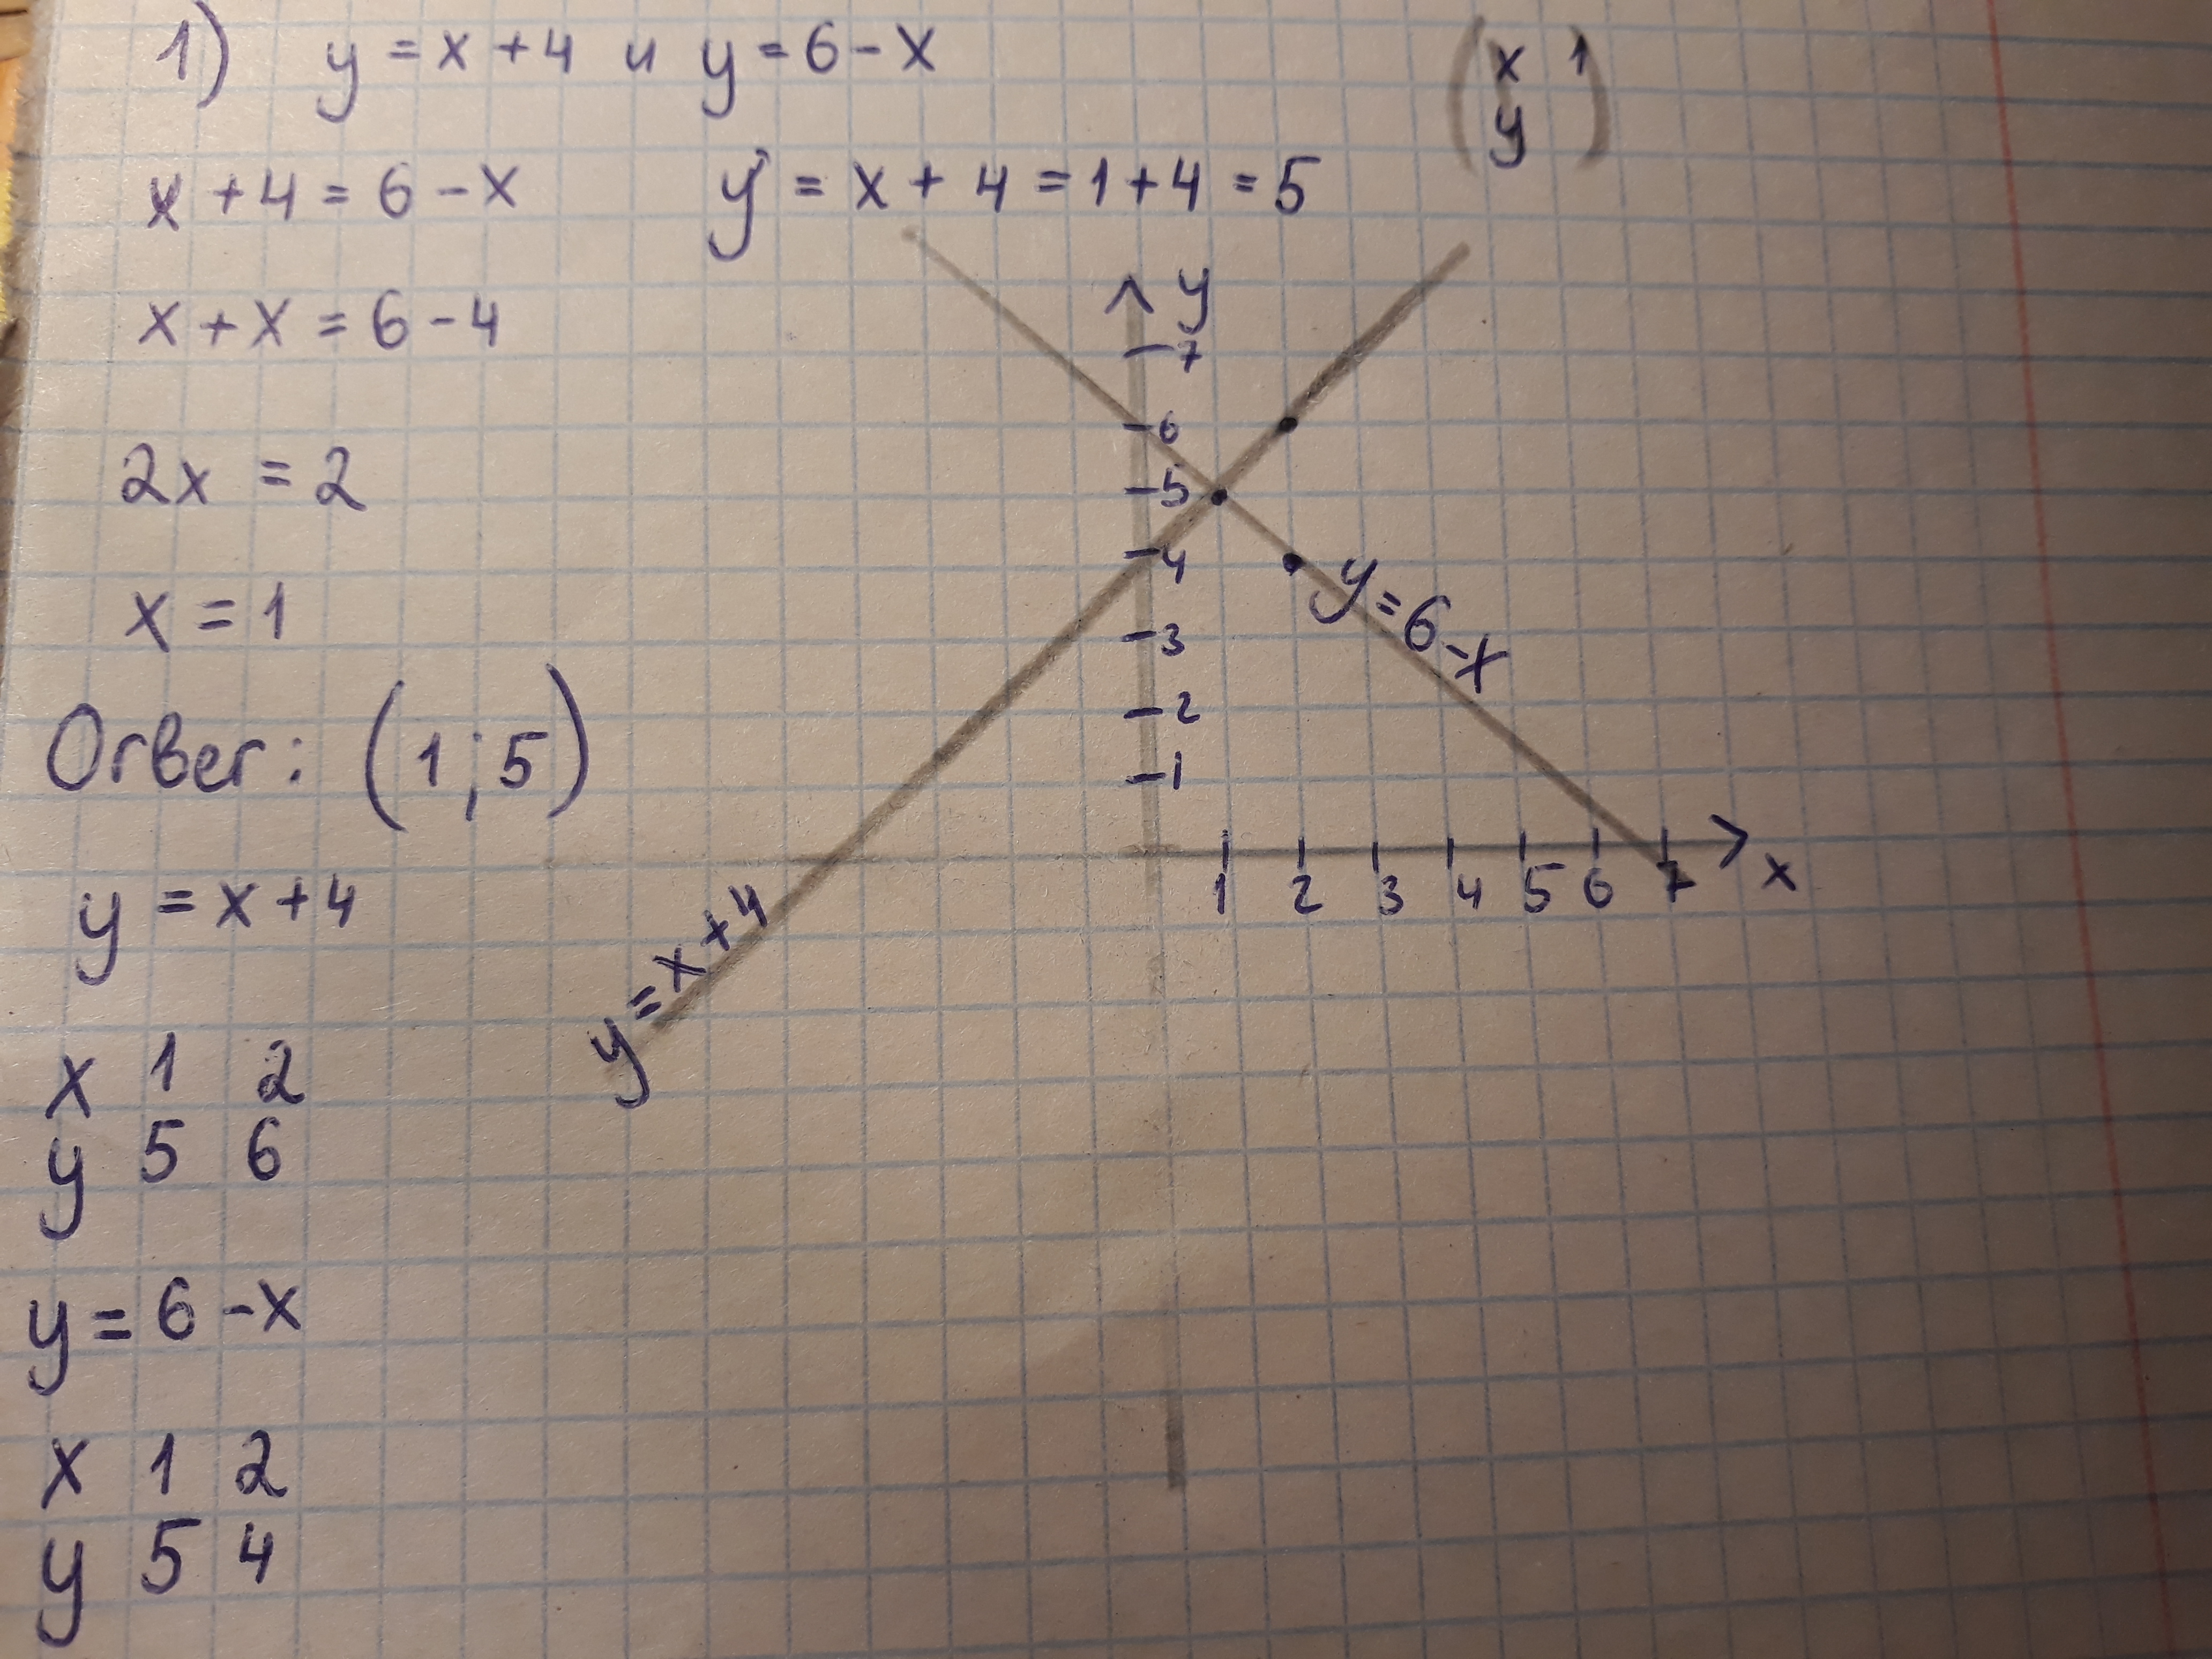 1) y = x + 4 и y = 6 - x
x 1
y
x + 4 = 6 - x
y = x + 4 = 1 + 4 = 5
x + x = 6 - 4
2x = 2
x = 1
Ответ: (1; 5)
y = x + 4
x 1 2
y 5 6
y = 6 - x
x 1 2
y 5 4
y
7
6
5
4
3
2
1
1 2 3 4 5 6 7 x
y = 6 - x
y = x + 4